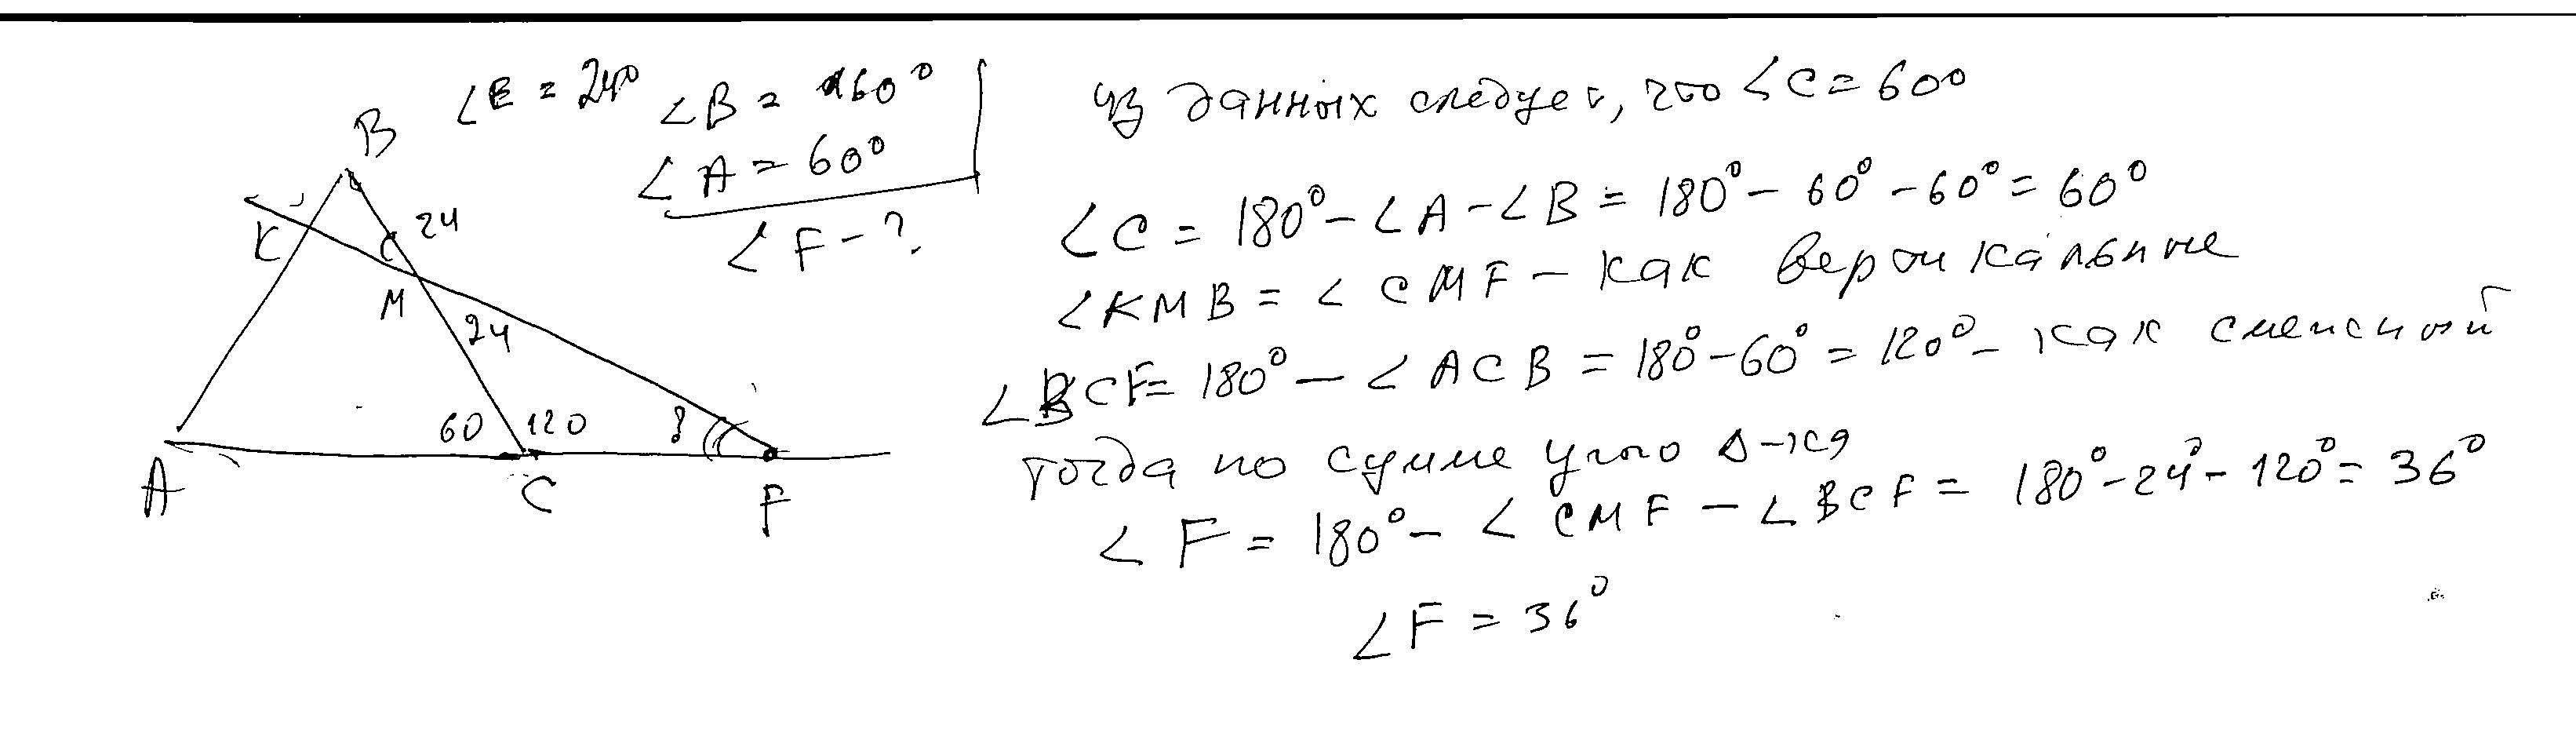 ∠E = 24° ∠B = 60°
∠A = 60°
∠F - ?
B
K
24
M
24
60 120 ?
A C F
из данных следует, что ∠C = 60°
∠C = 180° - ∠A - ∠B = 180° - 60° - 60° = 60°
∠KMB = ∠CMF - как вертикальные
∠BCF = 180° - ∠ACB = 180° - 60° = 120° - как смежный
тогда по сумме угло Δ-ка
∠F = 180° - ∠CMF - ∠BCF = 180° - 24° - 120° = 36°
∠F = 36°